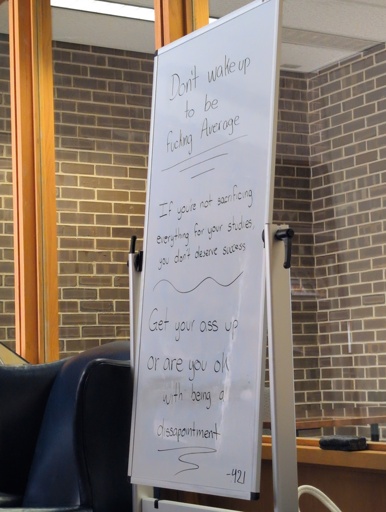 Don't wake up
to be
fucking Average
If you're not sacrificing
everything for your studies,
you don't deserve success
Get your ass up
or are you ok
with being a
dissapointment
-421